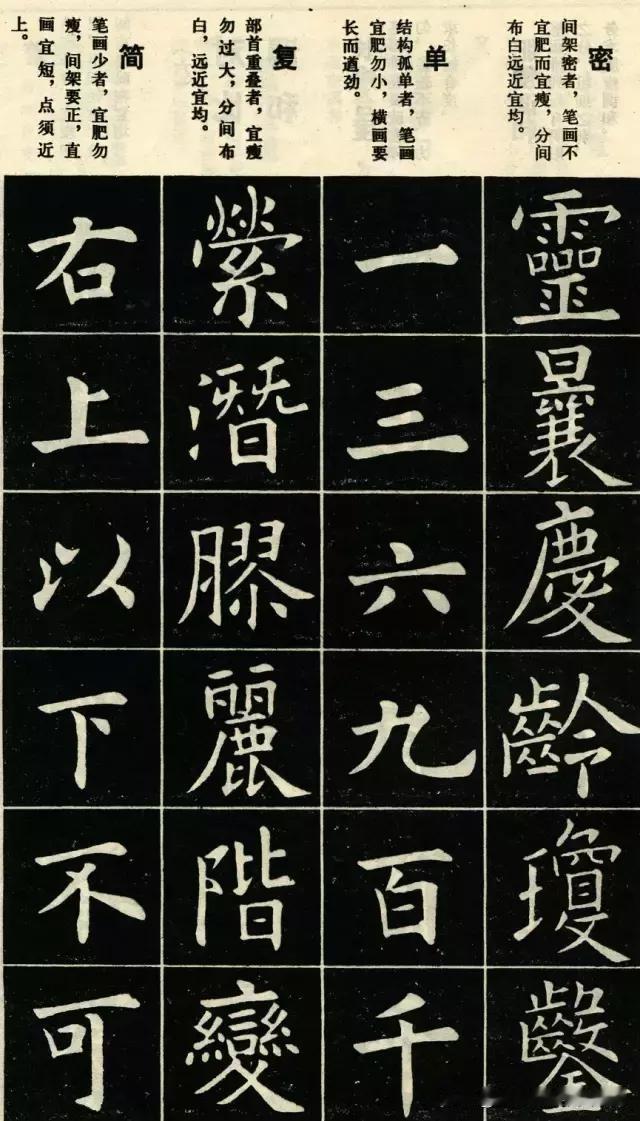 密
间架密者，笔画不
宜肥而宜瘦，分间
布白远近宜均。
靈曩慶齡瓊鑿
单
结构孤单者，笔画
宜肥勿小，横画要
长而遒劲。
一三六九百千
复
部首重叠者，宜瘦
勿过大，分间布
白，远近宜均。
縈潛膠麗階變
简
笔画少者，宜肥勿
瘦，间架要正，直
画宜短，点须近
上。
右上以下不可